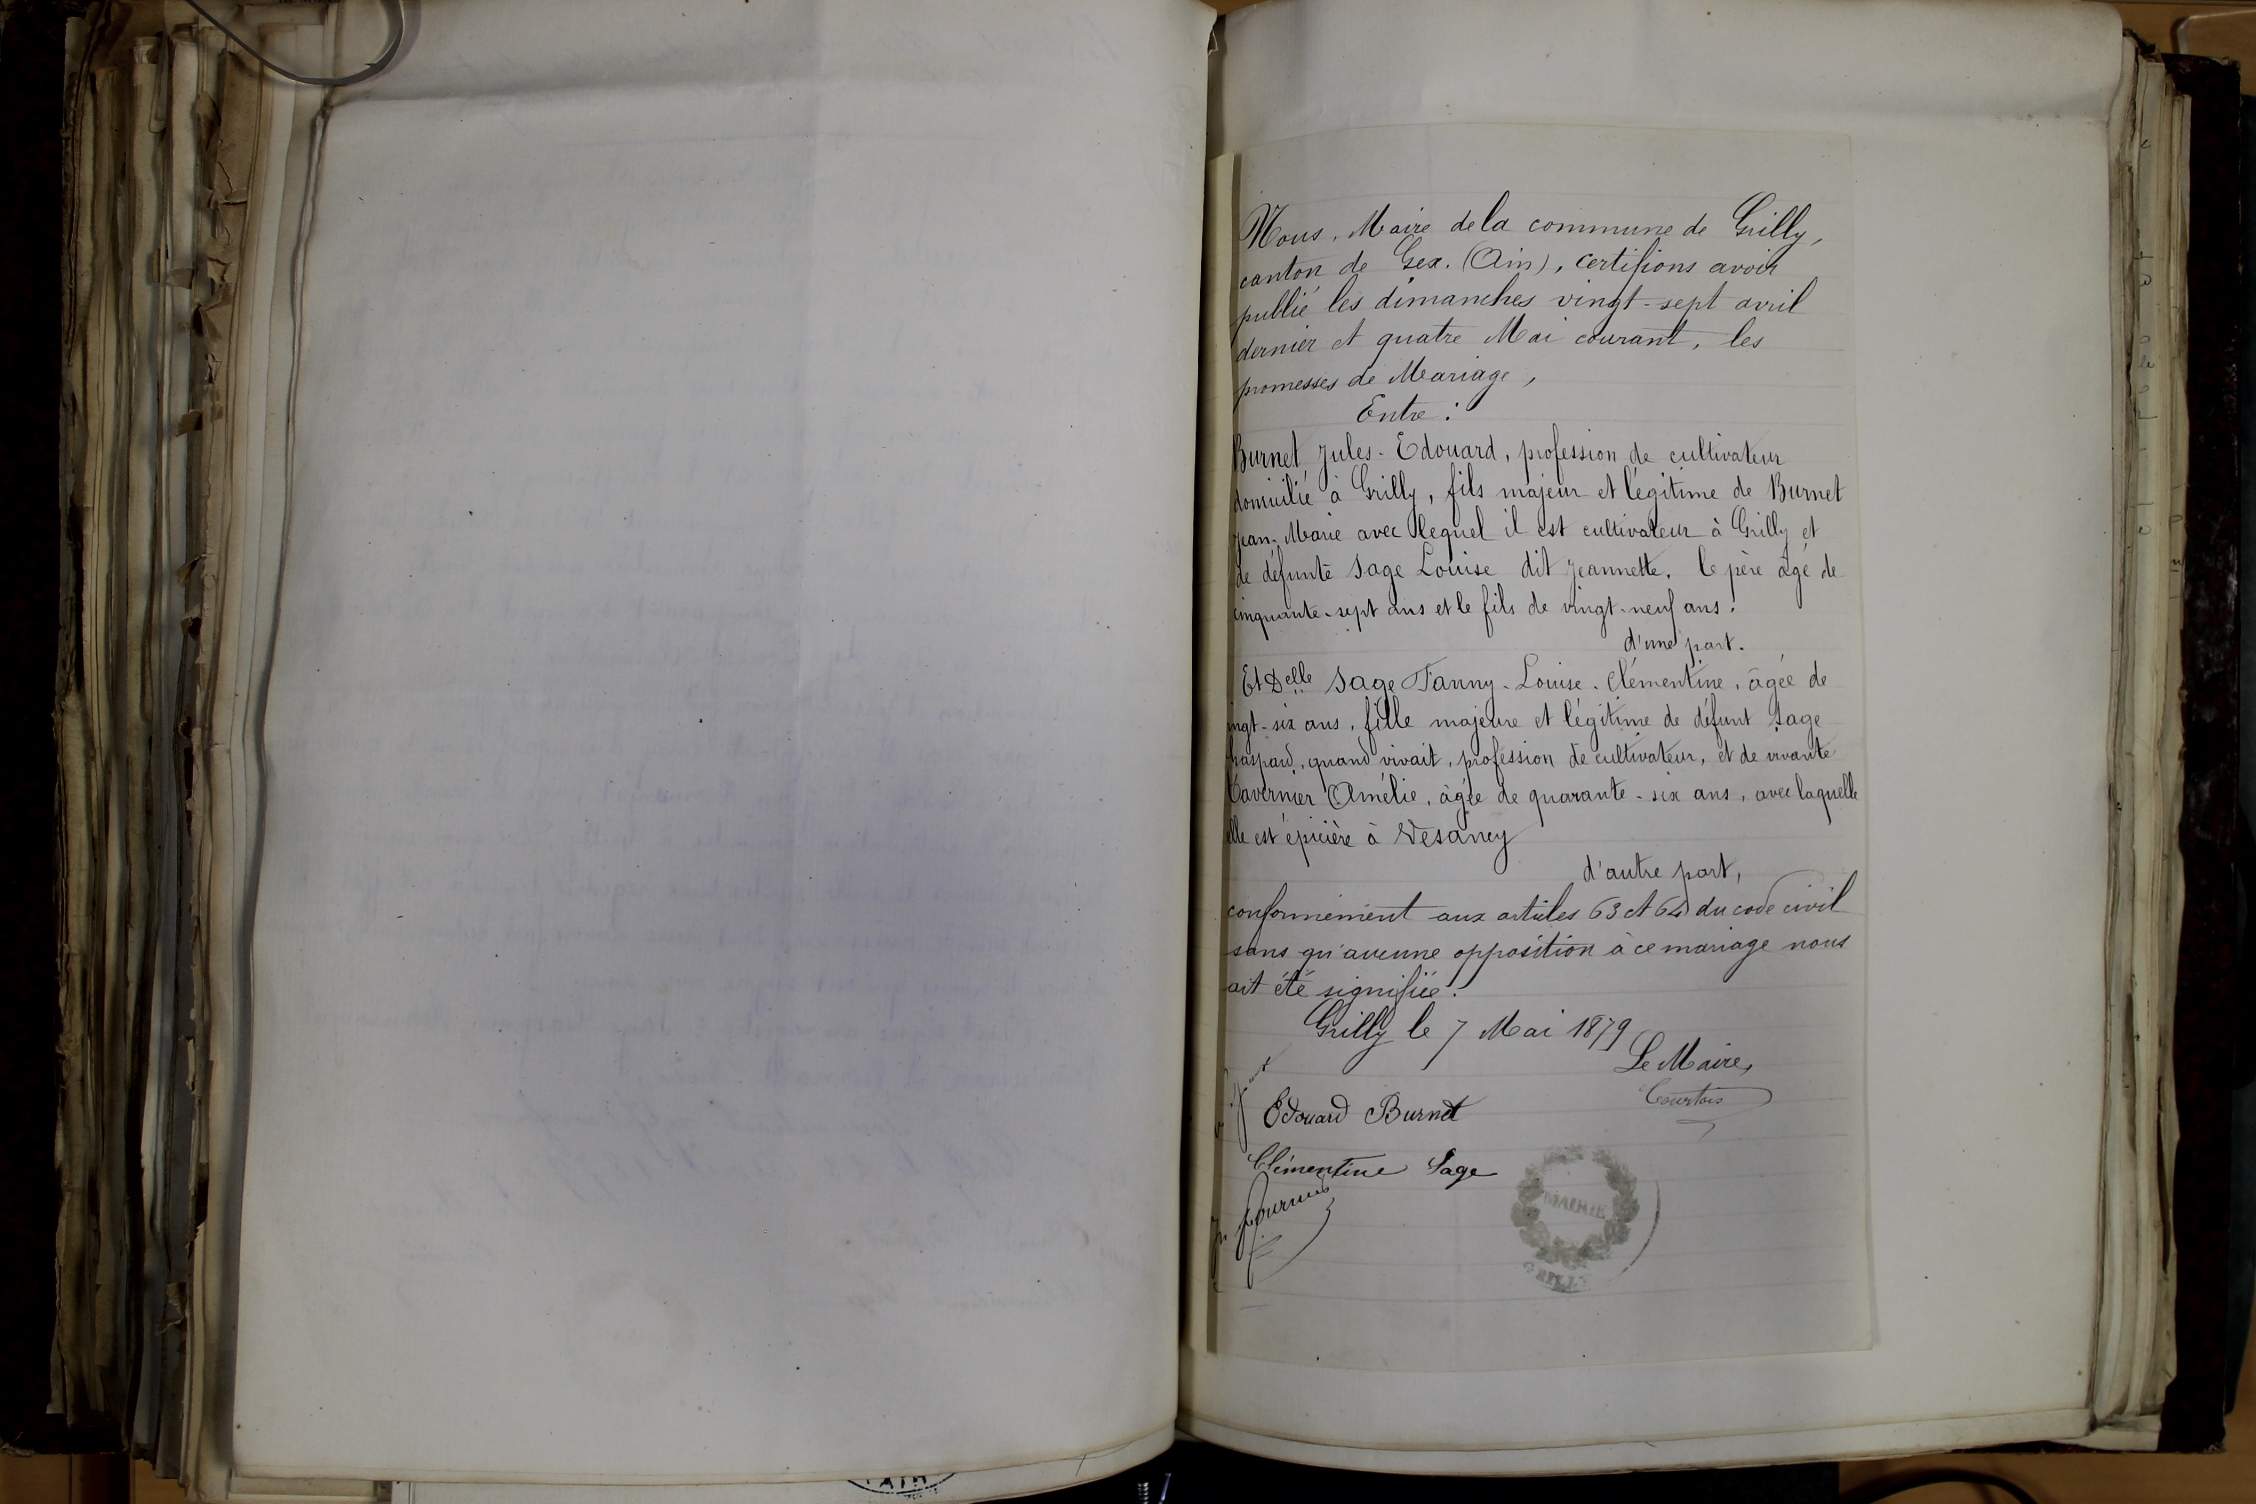 Nous, Maire de la commune de Grilly,
canton de Gex. (Ain), certifions avoir
publié les dimanches vingt-sept avril
dernier et quatre Mai courant, les
promesses de Mariage,
Entre :
Burnet, Jules-Edouard, profession de cultivateur
domicilié à Grilly, fils majeur et légitime de Burnet
Jean-Marie avec lequel il est cultivateur à Grilly et
de défunte Sage Louise dit Jeannette. Le père âgé de
cinquante-sept ans et le fils de vingt-neuf ans.
d'une part.
Et Delle Sage Fanny-Louise-Clémentine, âgée de
ingt-six ans, fille majeure et légitime de défunt Sage
haspard, quand vivait, profession de cultivateur, et de vivante
Tavernier Amélie, âgée de quarante-six ans, avec laquelle
elle est épicière à Vesancy
d'autre part,
conformément aux articles 63 et 64 du code civil
sans qu'aucune opposition à ce mariage nous
ait été signifiée.
Grilly le 7 Mai 1879
Le Maire,
Courtois
Edouard Burnet
Clémentine Sage
MAIRIE
GRILLY